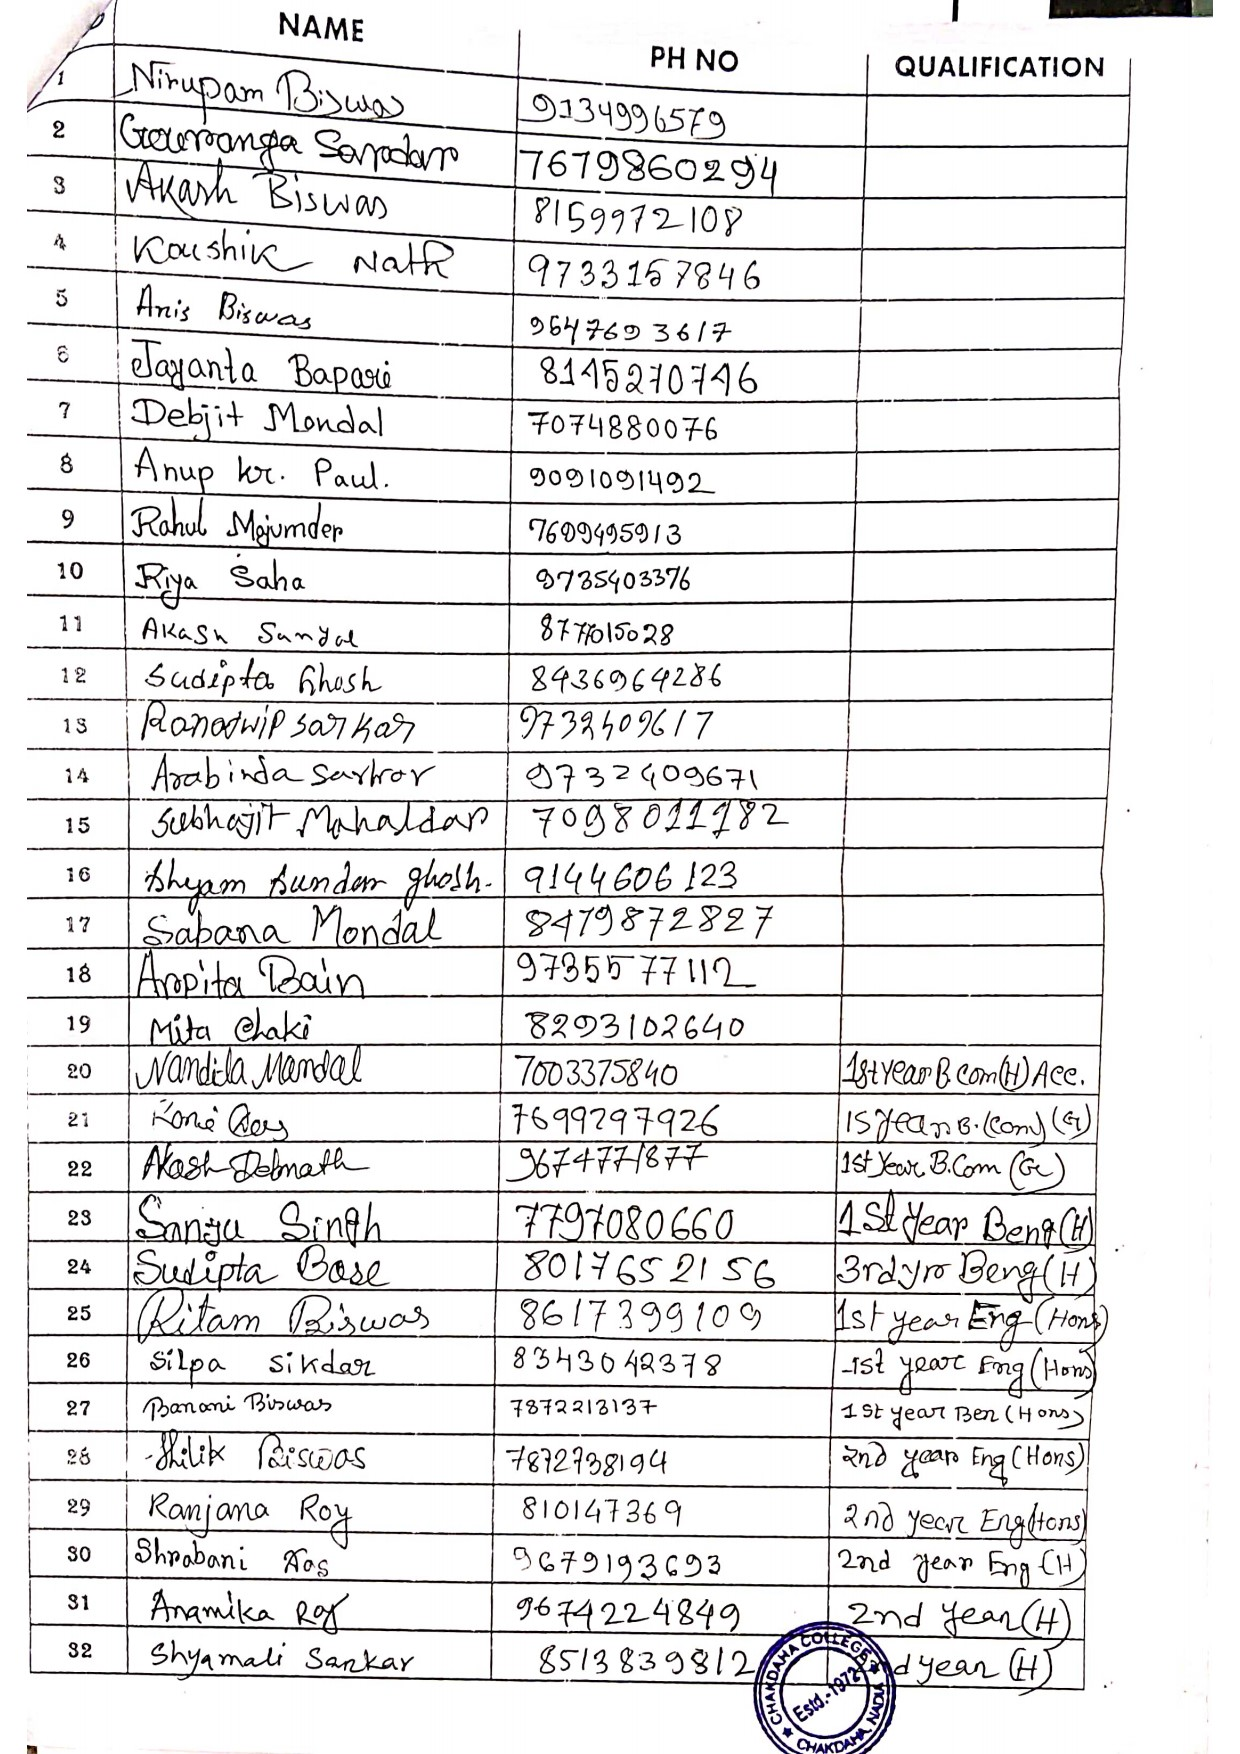 NAME PH NO QUALIFICATION
1 Nirupam Biswas 9134996579
2 Gouranga Sardar 7679860294
3 Akash Biswas 8159972108
4 Koushik Nath 9733157846
5 Anis Biswas 9647693617
6 Jayanta Bapari 8145270746
7 Debjit Mondal 7074880076
8 Anup kr. Paul. 9091091492
9 Rahul Mojumder 7699495913
10 Riya Saha 9735403376
11 Akash Sanyal
12 Sudipta Ghosh 8436964286
13 Ranadwip sarkar 9732409617
14 Arabinda Sarkar 9732409671
15 Subhajit Mahaldar 7098011182
16 Shyam Sundar ghosh. 9144606123
17 Sabana Mondal 8479872827
18 Arpita Bain 9735577112
19 Mita Chaki 8293102640
20 Nandita Mandal 7003375840 1st year B.com(H) Acc.
21 7699297926 1s year B.(Com) (G)
22 Akash Debnath 9674771877 1st Year B.Com (G)
23 Sanju Singh 7797080660 1st year Beng(H)
24 Sudipta Bose 8017652156 3rd yr Beng(H)
25 Ritam Biswas 8617399109 1st year Eng (Hons)
26 Silpa Sikdar 8343042378 1st year Eng (Hons)
27 Banani Biswas 7872213137 1st year Ben (Hons)
28 Jhilik Biswas 7872738194 2nd year Eng (Hons)
29 Ranjana Roy 810147369 2nd year Eng(Hons)
30 Shrabani Das 9679193693 2nd year Eng (H)
31 Anamika Roy 9674224849 2nd year (H)
32 Shyamali Sarkar 8513839812 nd year (H)
CHAKDAHA COLLEGE
Estd.-1972
CHAKDAHA, NADIA